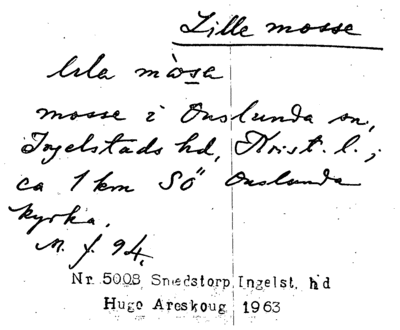 Lille mosse
lila måsa
mosse i Onslunda sn,
Ingelstads hd, Krist. l.;
ca 1 km SÖ Onslunda
kyrka.
N. f. 94.
Nr 5008 Smedstorp Ingelst. hd
Hugo Areskoug 1963